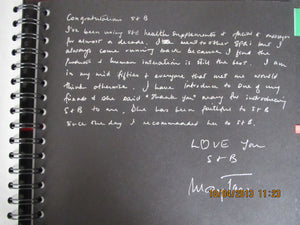 Congratulations S+B
I've been using S+B health supplements + facial + massages
for almost a decade. I went to other SPAs but I
always come running back because I find the
products + human interaction is still the best. I am
in my mid fifties + everyone that met me would
think otherwise. I have introduce to one of my
friends & she said "thank you" many for introducing
S+B to me. She has been faithful to S+B
since the day I recommended her to S+B.
LOVE You
S+B
10/04/2013 11:23